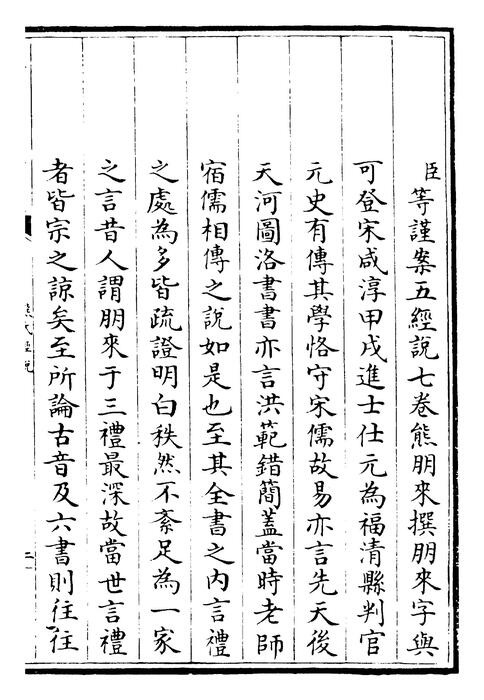 臣等謹案五經說七卷熊朋來撰朋來字與
可登宋咸淳甲戌進士仕元為福清縣判官
元史有傳其學恪守宋儒故易亦言先天後
天河圖洛書書亦言洪範錯簡蓋當時老師
宿儒相傳之說如是也至其全書之內言禮
之處為多皆疏證明白秩然不紊足為一家
之言昔人謂朋來于三禮最深故當世言禮
者皆宗之諒矣至所論古音及六書則往往